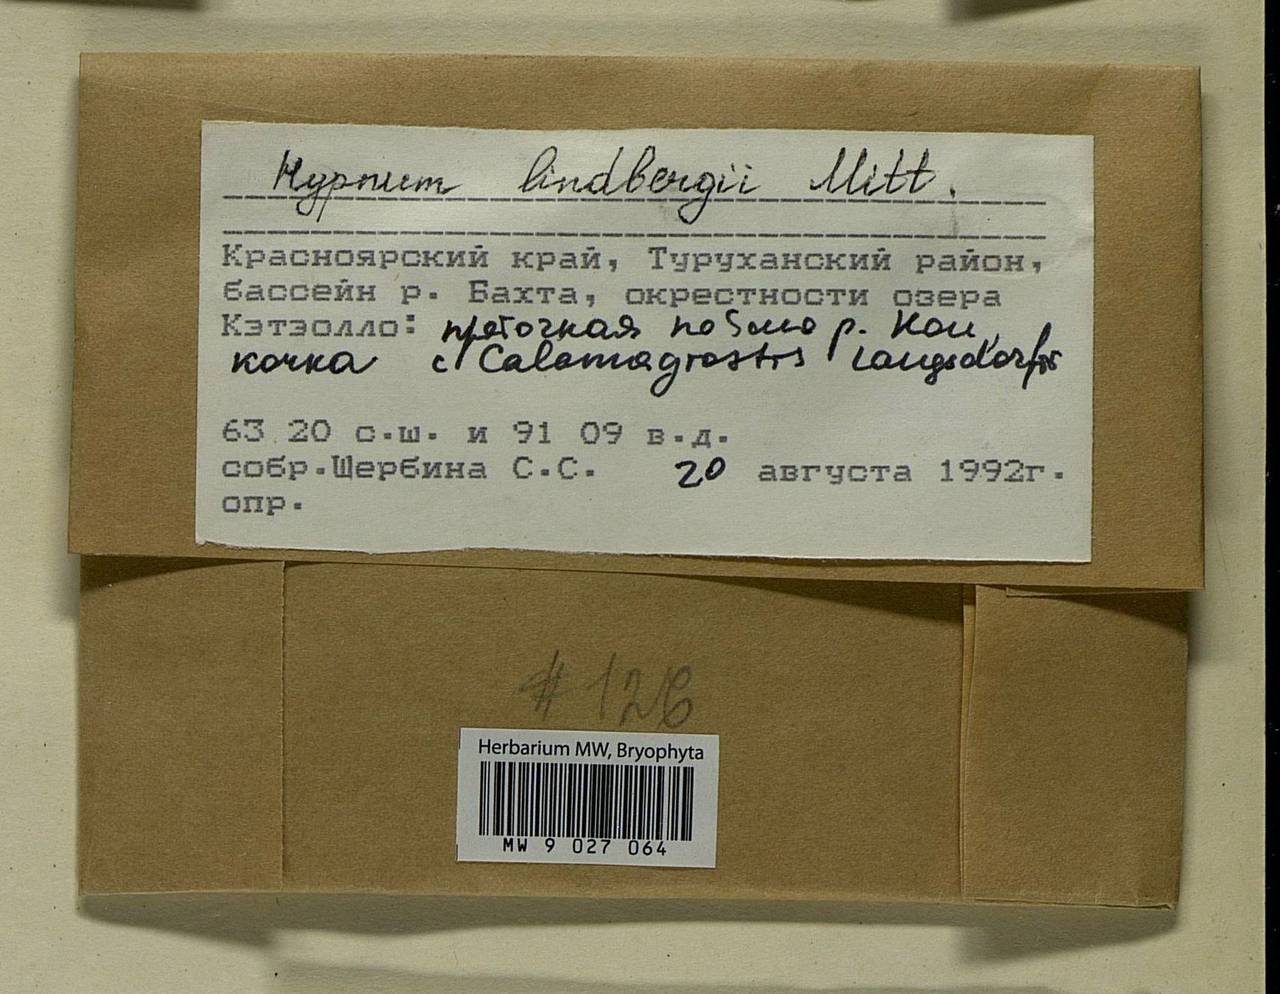 Hypnum lindbergii Mitt.
Красноярский край, Туруханский район,
бассейн р. Бахта, окрестности озера
Кэтэолло: проточная р.
кочка с Calamagrostis langsdorfii
63 20 с.ш. и 91 09 в.д.
собр.Щербина С.С. 20 августа 1992г.
опр.
# 126
Herbarium MW, Bryophyta
MW 9 027 064